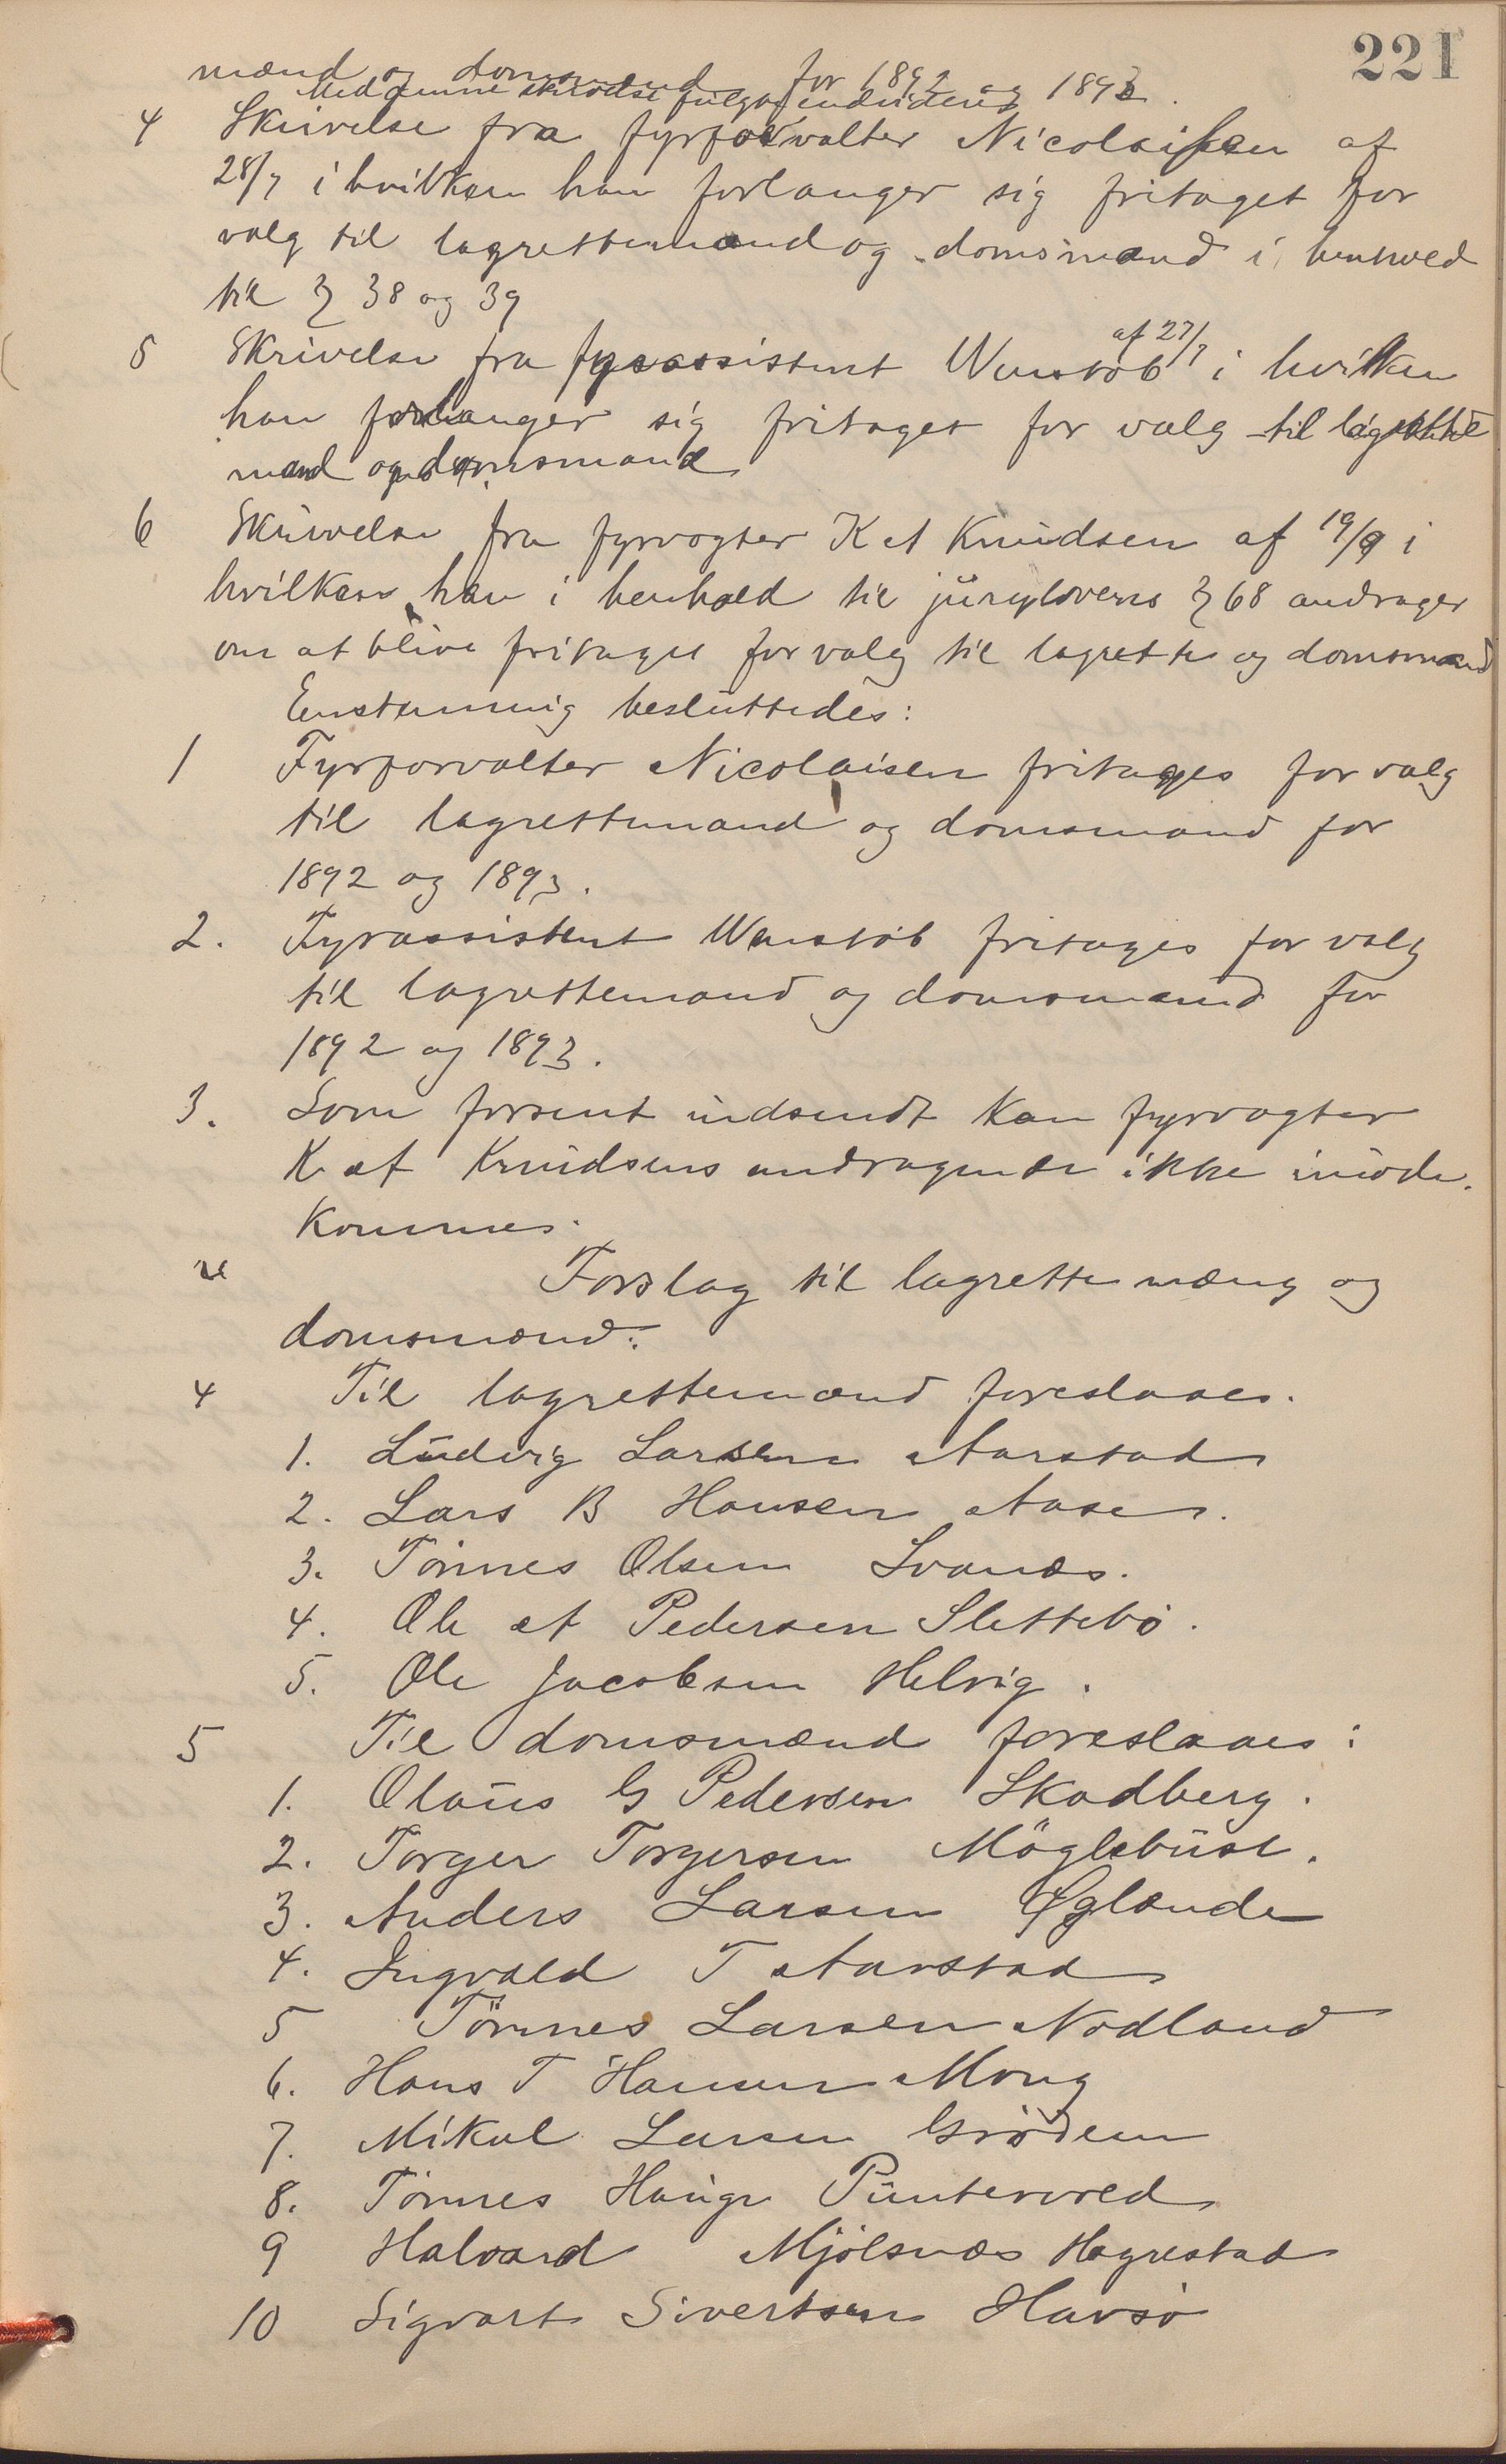 221
mænd og domsmænd for 1892 og 1893.
Med denne skrivelse fulgte
4 Skrivelse fra fyrforvalter Nicolaisen af
28/7 i hvilken han forlanger sig fritaget for
valg til lagrettemænd og domsmænd i henhold
til § 38 og 39
5 Skrivelse fra fyrassistent Wenstöb af 27/7 i hvilken
han forlanger sig fritaget for valg til lagrette
mænd og domsmænd
6 Skrivelse fra fyrvogter K A Knudsen af 19/9 i
hvilken han i henhold til jurylovens § 68 andrager
om at blive fritaget for valg til lagrette og domsmænd
Enstemmig besluttedes:
1 Fyrforvalter Nicolaisen fritages for valg
til lagrettemand og domsmand for
1892 og 1893.
2. Fyrassistent Wenstöb fritages for valg
til lagrettemand og domsmand for
1892 og 1893.
3. Som forsent indsendt kan fyrvogter
K A Knudsens andragende ikke imöde.
kommes.
Forslag til lagrettemæng og
domsmænd:
4 Til lagrettemænd foreslaaes.
1. Ludvig Larsen Aarstad
2. Lars B Hansen Aase.
3. Tönnes Olsen Svanæs.
4. Ole A Pedersen Slettebö.
5. Ole Jacobsen Helvig.
5 Til domsmænd foreslaaes:
1. Olaus G Pedersen Skadberg.
2. Torger Torgersen Möglebust.
3. Anders Larsen Eglænde
4. Ingvald T Aarstad
5 Tönnes Larsen Nodland
6. Hans T Hansen Mong
7. Mikal Larsen Grödem
8. Tönnes Hauge Puntervold
9 Halvard Mjölsnæs Hagrestad
10 Sigvart Sivertsen Havsö